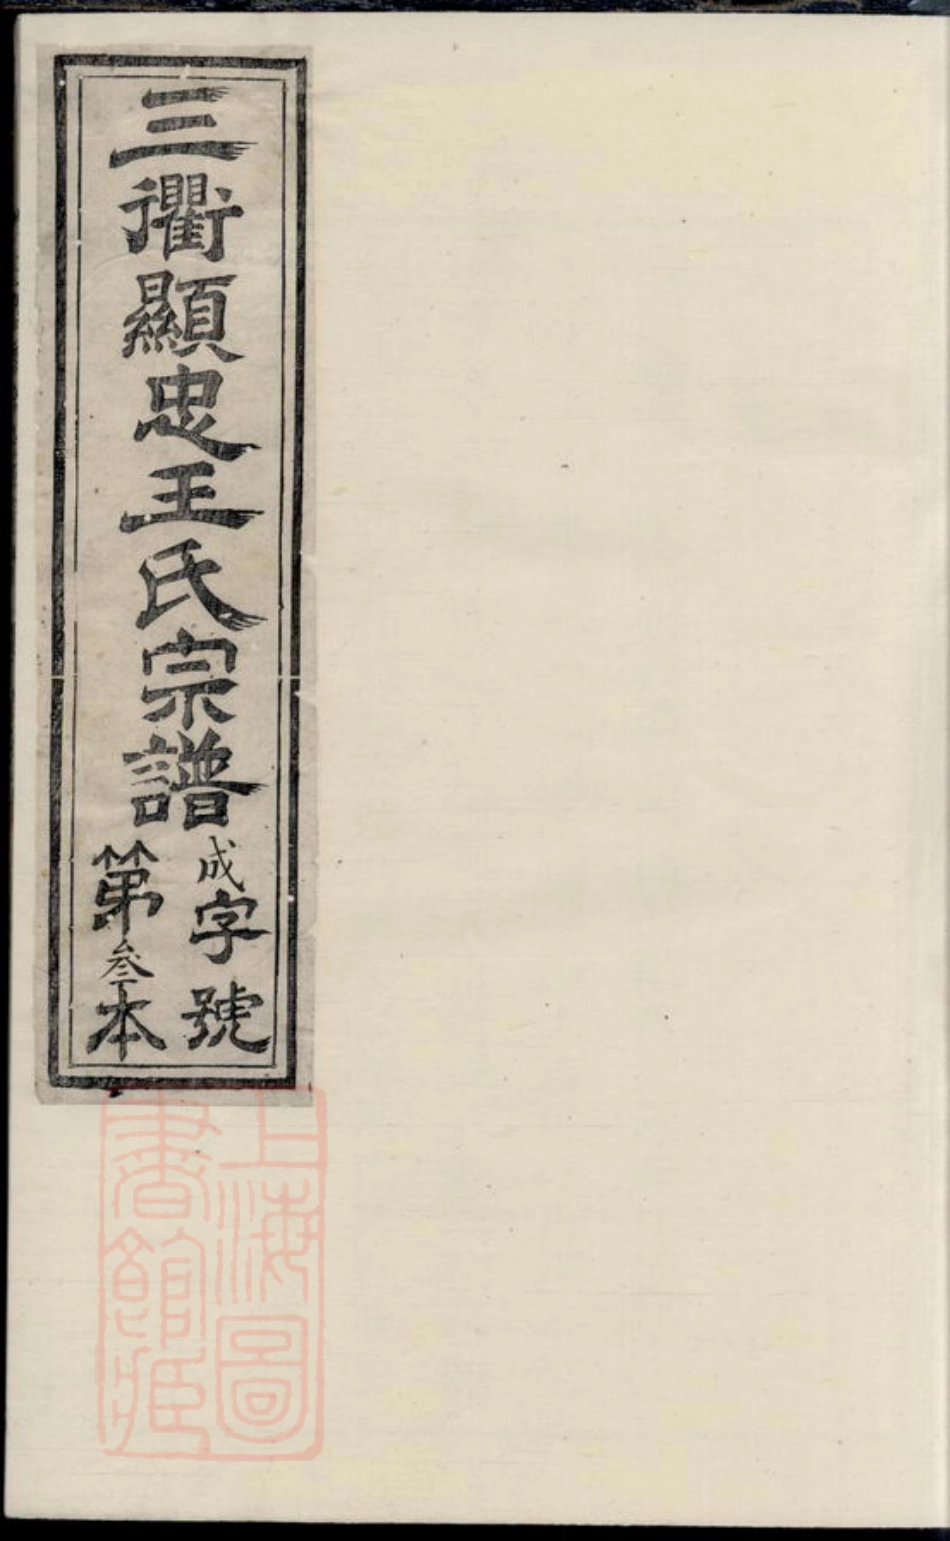 三衢顯忠王氏宗譜
成字號
第叄本
上海圖
書館藏